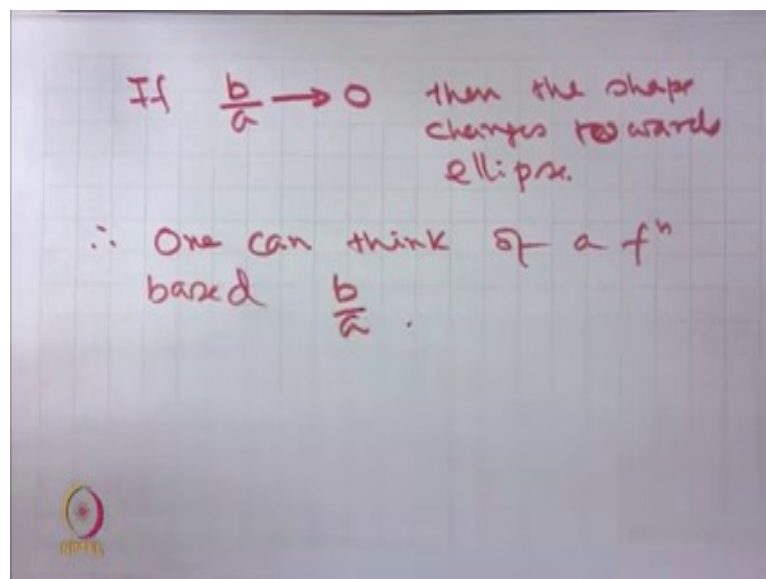 If b/a → 0 then the shape
changes towards
ellipse.
∴ One can think of a fⁿ
based b/a .
NPTEL